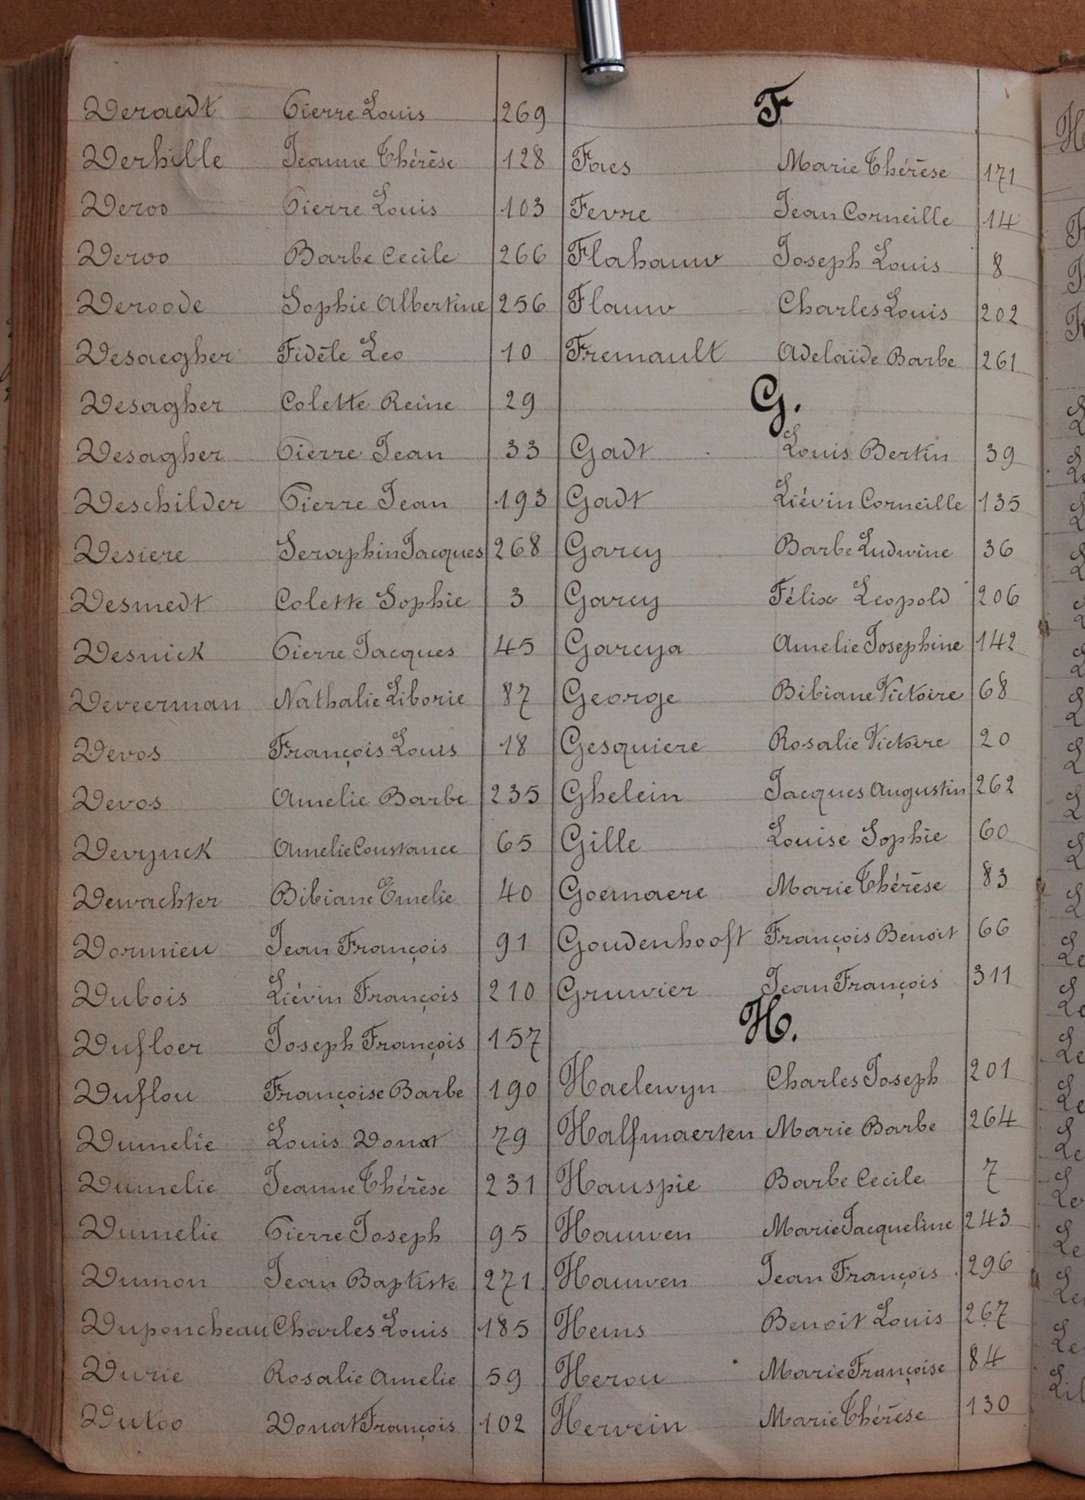 Deraedt Pierre Louis 269
Derhille Jeanne Thérèse 128
Deroo Pierre Louis 103
Deroo Barbe Cecile 266
Deroode Sophie Albertine 256
Desaegher Fidèle Leo 10
Desagher Colette Reine 29
Desagher Pierre Jean 33
Deschilder Pierre Jean 193
Desiere Seraphin Jacques 268
Desmedt Colette Sophie 3
Desnick Pierre Jacques 45
Deveerman Nathalie Liborie 87
Devos François Louis 18
Devos Amelie Barbe 235
Devynck Amelie Constance 65
Dewachter Bibiane Emelie 40
Dormieu Jean François 91
Dubois Liévin François 210
Dufloer Joseph François 157
Duflou Françoise Barbe 190
Dumelie Louis Donat 79
Dumelie Jeanne Thérèse 231
Dumelie Pierre Joseph 95
Dumon Jean Baptiste 271
Duponcheau Charles Louis 185
Durie Rosalie Amelie 59
Dutoo Donat François 102
F
Faes Marie Thérèse 171
Fevre Jean Corneille 14
Flahauw Joseph Louis 8
Flauw Charles Louis 202
Fremault Adelaïde Barbe 261
G.
Gadt Louis Bertin 39
Gadt Liévin Corneille 135
Garcy Barbe Ludwine 36
Garcy Félix Leopold 206
Garcya Amelie Josephine 142
George Bibiane Victoire 68
Gesquiere Rosalie Victoire 20
Ghelein Jacques Augustin 262
Gille Louise Sophie 60
Goemaere Marie Thérèse 83
Goudenhooft François Benoit 66
Gruwier Jean François 311
H.
Haelewyn Charles Joseph 201
Halfmaerten Marie Barbe 264
Hauspie Barbe Cecile 7
Hauwen Marie Jacqueline 243
Hauwen Jean François 296
Hems Benoit Louis 267
Herou Marie Françoise 84
Hervein Marie Thérèse 130